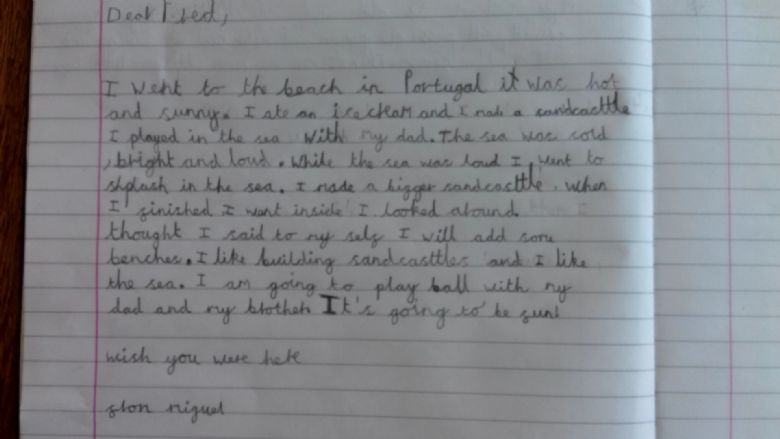 Dear Fred,
I went to the beach in Portugal it was hot
and sunny. I ate an icecream and I made a sandcasttle
I played in the sea with my dad. The sea was cold
, bright and loud. While the sea was loud I went to
shplash in the sea. I made a bigger sandcasttle. when
I finished I want inside I looked around.
thought I said to my self I will add some
benches. I like building sandcasttles and I like
the sea. I am going to play ball with my
dad and my brother. It's going to be fun!
wish you were here
from miguel